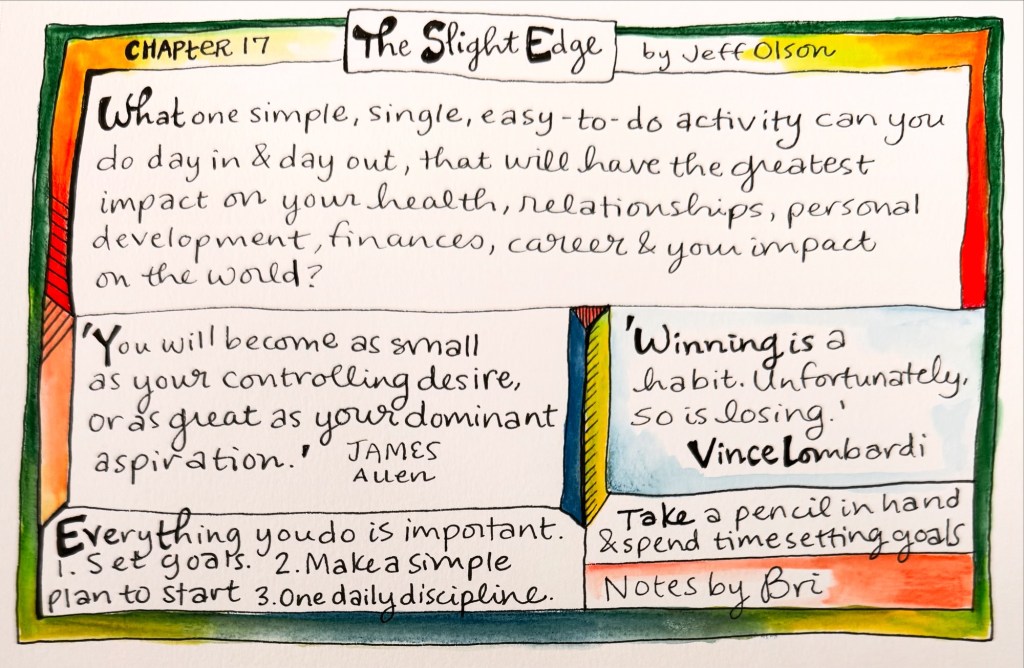 CHAPTER 17
The Slight Edge
by Jeff Olson
What one simple, single, easy-to-do activity can you
do day in & day out, that will have the greatest
impact on your health, relationships, personal
development, finances, career & your impact
on the world?
'You will become as small
as your controlling desire,
or as great as your dominant
aspiration.' JAMES
Allen
'Winning is a
habit. Unfortunately,
so is losing.'
Vince Lombardi
Everything you do is important.
1. Set goals. 2. Make a simple
plan to start 3. One daily discipline.
Take a pencil in hand
& spend time setting goals
Notes by Bri